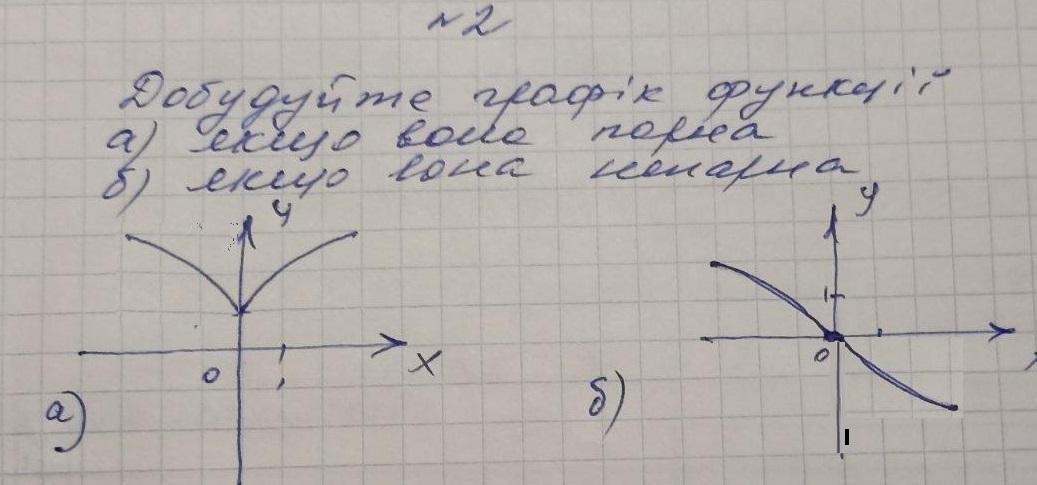 №2
Добудуйте графік функції
а) якщо вона парна
б) якщо вона непарна
y
y
1
0
x
0
1
а)
б)